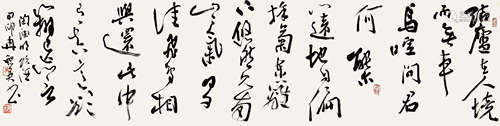 結廬在人境
而無車
馬喧問君
何能爾
心遠地自偏
採菊東籬
下悠然見南
山山氣日夕
佳飛鳥相
與還此中
有真意欲
辨已忘言
陶淵明